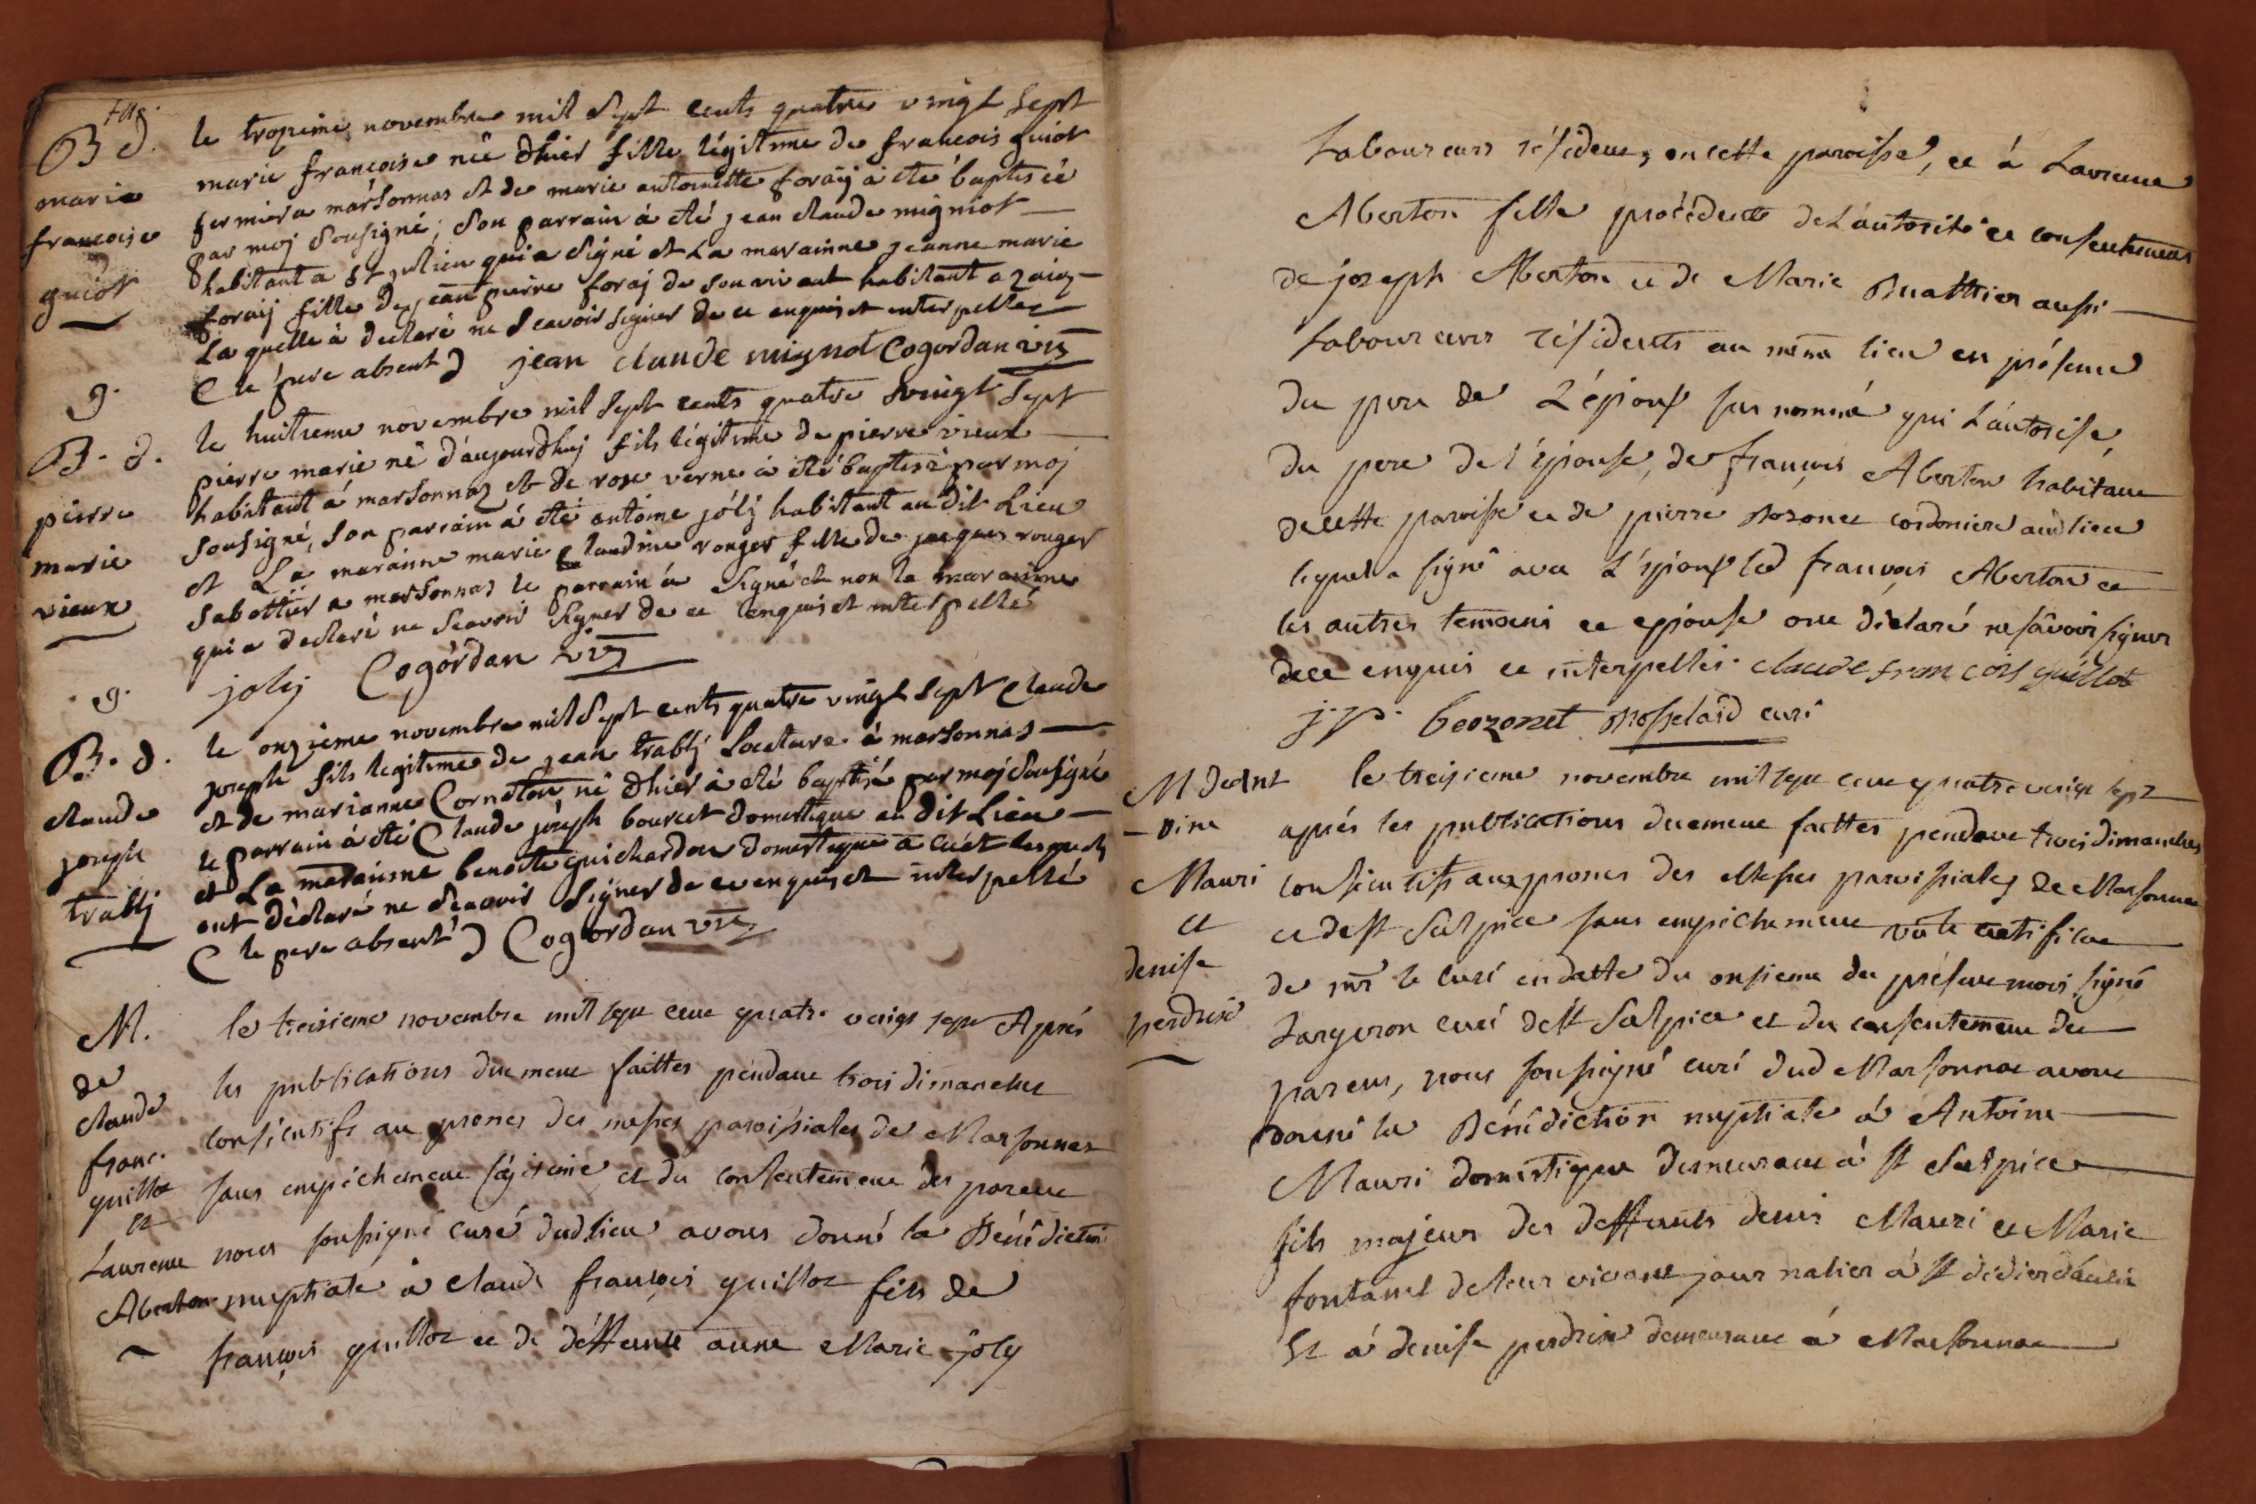 B d.
marie
francoise
guiot
le trozieme novembre mil sept cents quatre vingt sept
marie francoise née dhier fille légitime de francois guiot
fermier a marsonnas et de marie antoinette foraij a été baptisée
par moj sousigné, son parrain á été jean claude migniot
habitant a st julien qui a signé et La marainne jeanne marie
foraij fille de jean pierre foraj de son vivant habitant a
La quelle á declaré ne scavoir signer de ce enquis et interpellez
( le pere absent ) jean claude mignot Cogordan vic
g.
B. d.
pierre
marie
vieux
le huitieme novembre mil sept cents quatre vingt sept
pierre marie né d'aujourdhuj fils légitime de pierre vieux
habitant á marsonnaz et de rose verne a été baptisé par moj
sousigné, son parrain á été antoine jólij habitant au dit Lieu
et La marainne marie Claudine rouger fille de jacques rouger
sabottier a marsonnas le parrain á signé et non la marainne
qui a declaré ne scavoir signer de ce enquis et interpellé
jolij Cogórdan vic
g.
B. d.
claude
joseph
trablj
le onzieme novembre mil sept cents quatre vingt sept Claude
joseph fils legitime de jean trablj Locature á marsonnas
et de marianne Corneton né dhier á été baptisé par moj sousigné
le parrain á été Claude joseph bourcet domestique au dit Lieu
et La marainne benoite guichardon domestique a cuét lesquels
ont déclaré ne scavoir signer de ce enquis et interpellé
( le pere absent ) Cogordan vic
M.
de
claude
franc.
guillot
et
Laurence
Aberton
le treisieme novembre mil sept cent quatre vingt sept Aprés
les publications duement faittes pendant trois dimanches
consécutifs au prones des messes paroissiales de Marsonnas
sans empéchement légitime et du consentement des parent
nous soussigné curé dud lieu avons donné la Bénédiction
nuptiale á claude françois guillot fils de
françois guillot et de déffunte anne Marie joly
Laboureurs résidents en cette paroisse, et á Laurence
Aberton fille procédente de L'autorité et consentement
de joseph Aberton et de Marie Buathier aussi
Laboureurs résidents au même lieu en présence
du pere de L'époux sus nommé qui L'autorise,
du pere de l'épouse, de françois Aberton habitant
de cette paroisse et de pierre Bozonet cordonier aud lieu
lequel a signé avec L'époux led françois Aberton et
les autres temoins et epouse ont déclaré ne sávoir signer
de ce enquis et interpellés. claude francois guillot
j. p. beozonet curé
M d'ant
oine
Mauri
et
denise
perdrix
le treisieme novembre mil sept cent quatre vingt sept
aprés les publications duement faittes pendant trois dimanches
consécutifs aux prones des Messes paroissiales de Marsonnas
et de st Sulpice sans empéchement vu le certificat
de mr le curé en datte du onsieme du présent mois signé
curé de st Sulpice et du consentement des
parens, nous soussigné curé dud Marsonnas avons
donné la Bénédiction nuptiale á Antoine
Mauri domestique demeurant á st Sulpice
fils majeur des deffunts denis Mauri et Marie
fontanel de leur vivant journalier á st didier
Et á denise perdrix demeurant á Marsonnas